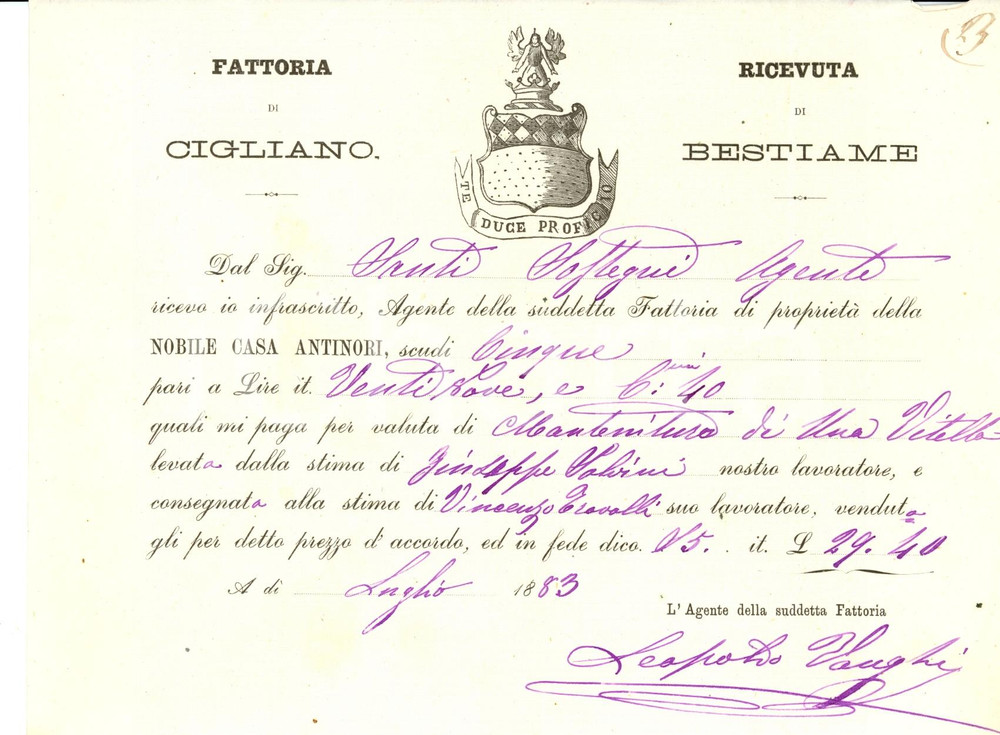 23
FATTORIA
DI
CIGLIANO.
RICEVUTA
DI
BESTIAME
TE DUCE PROFICIO
Dal Sig. Santi Sostegni Agente
ricevo io infrascritto, Agente della suddetta Fattoria di proprietà della
NOBILE CASA ANTINORI, scudi Cinque
pari a Lire it. Venti Nove, e C.mi 40
quali mi paga per valuta di Mantenitura di Una Vitella
levata dalla stima di Giuseppe Salvini nostro lavoratore, e
consegnata alla stima di Vincenzo suo lavoratore, venduta
gli per detto prezzo d'accordo, ed in fede dico. 5. it. £ 29. 40
A dì Luglio 1883
L'Agente della suddetta Fattoria
Leopoldo Vanghi